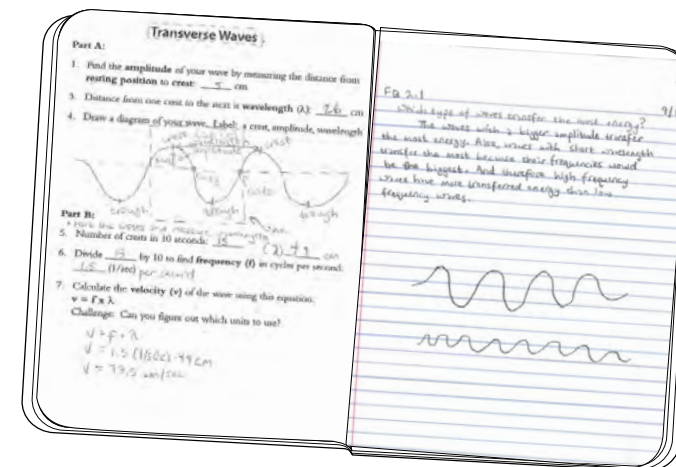 Transverse Waves
Part A:
1. Find the amplitude of your wave by measuring the distance from
resting position to crest: 5 cm
3. Distance from one crest to the next is wavelength (λ): cm
4. Draw a diagram of your wave. Label: a crest, amplitude, wavelength
crest
trough
trough
trough
Part B:
5. Number of crests in 10 seconds: 15
(λ) 49 cm
6. Divide 15 by 10 to find frequency (f) in cycles per second:
1.5 (1/sec) per second
7. Calculate the velocity (v) of the wave using this equation.
v = f x λ
Challenge: Can you figure out which units to use?
V = f · λ
V = 1.5 (1/sec) · 49 cm
V = 73.5 cm/sec
FQ 2.1
9/
Which type of waves transfer the most energy?
The waves with a bigger amplitude transfer
the most energy. Also, waves with short wavelength
transfer the most because their frequencies would
be the biggest. And therefore high frequency
waves have more transferred energy than low
frequency waves.